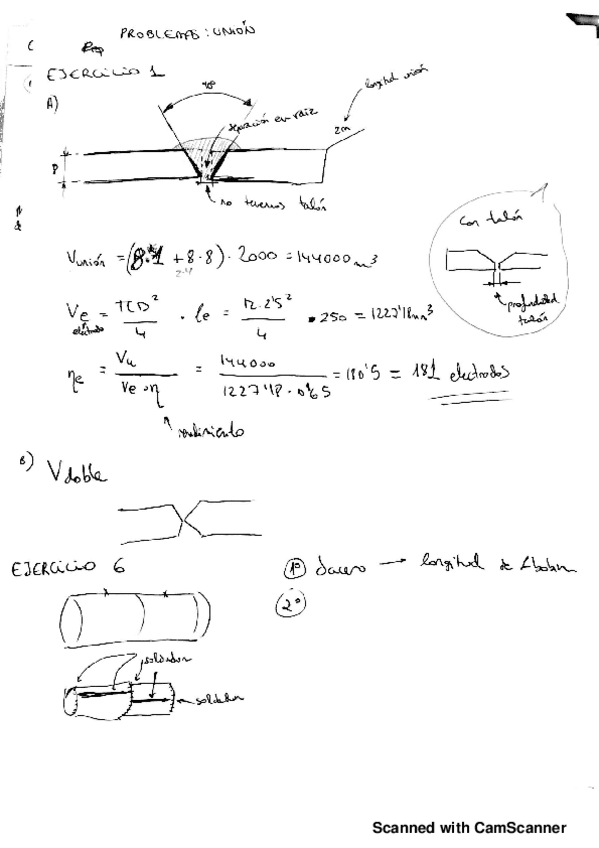 PROBLEMAS: UNIÓN
EJERCICIO 1
A)
longitud unión
separación en raiz
2m
P
no tenemos talón
Con talón
profundidad talón
V unión = (8·1 + 8·8) · 2000 = 144000 mm³
Ve electrodo = πD²/4 · le = π·2'5²/4 · 250 = 1227'18 mm³
ηe = Vu/Ve·η = 144000/1227'18·0'65 = 180'5 = 181 electrodos
rendimiento
B) V doble
EJERCICIO 6
1º → longitud de
2º
soldador